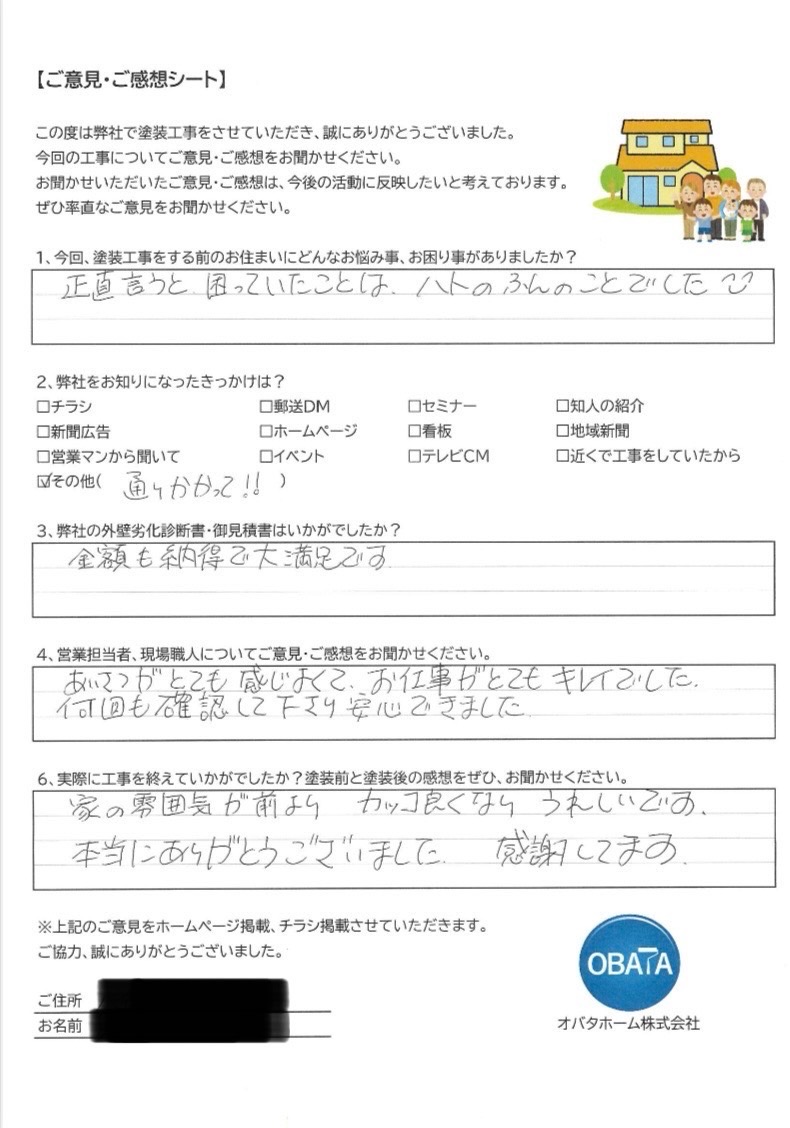 【ご意見・ご感想シート】
この度は弊社で塗装工事をさせていただき、誠にありがとうございました。
今回の工事についてご意見・ご感想をお聞かせください。
お聞かせいただいたご意見・ご感想は、今後の活動に反映したいと考えております。
ぜひ率直なご意見をお聞かせください。
1、今回、塗装工事をする前のお住まいにどんなお悩み事、お困り事がありましたか？
正直言うと、困っていたことは、ハトのふんのことでした
2、弊社をお知りになったきっかけは？
□チラシ □郵送DM □セミナー □知人の紹介
□新聞広告 □ホームページ □看板 □地域新聞
□営業マンから聞いて □イベント □テレビCM □近くで工事をしていたから
☑その他( 通りかかって!! )
3、弊社の外壁劣化診断書・御見積書はいかがでしたか？
金額も納得で大満足です
4、営業担当者、現場職人についてご意見・ご感想をお聞かせください。
あいさつがとても感じよくて、お仕事がとてもキレイでした。
何回も確認して下さり安心できました
6、実際に工事を終えていかがでしたか？塗装前と塗装後の感想をぜひ、お聞かせください。
家の雰囲気が前より カッコ良くなり うれしいです、
本当にありがとうございました 感謝してます。
※上記のご意見をホームページ掲載、チラシ掲載させていただきます。
ご協力、誠にありがとうございました。
ご住所
お名前
OBATA
オバタホーム株式会社